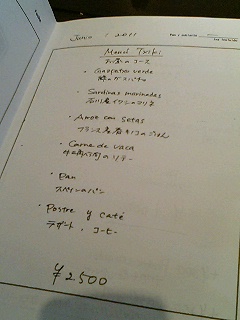 Junio / 2011
Menú Txoki
お昼のコース
・Gazpatxo verde
緑のガスパチョ
・Sardinas marinadas
石川産イワシのマリネ
・Arroz con setas
フランス産茸キノコのごはん
・Carne de vaca
牛のソテー
・Pan
スペインのパン
・Postre y café
デザート、コーヒー
¥2,500